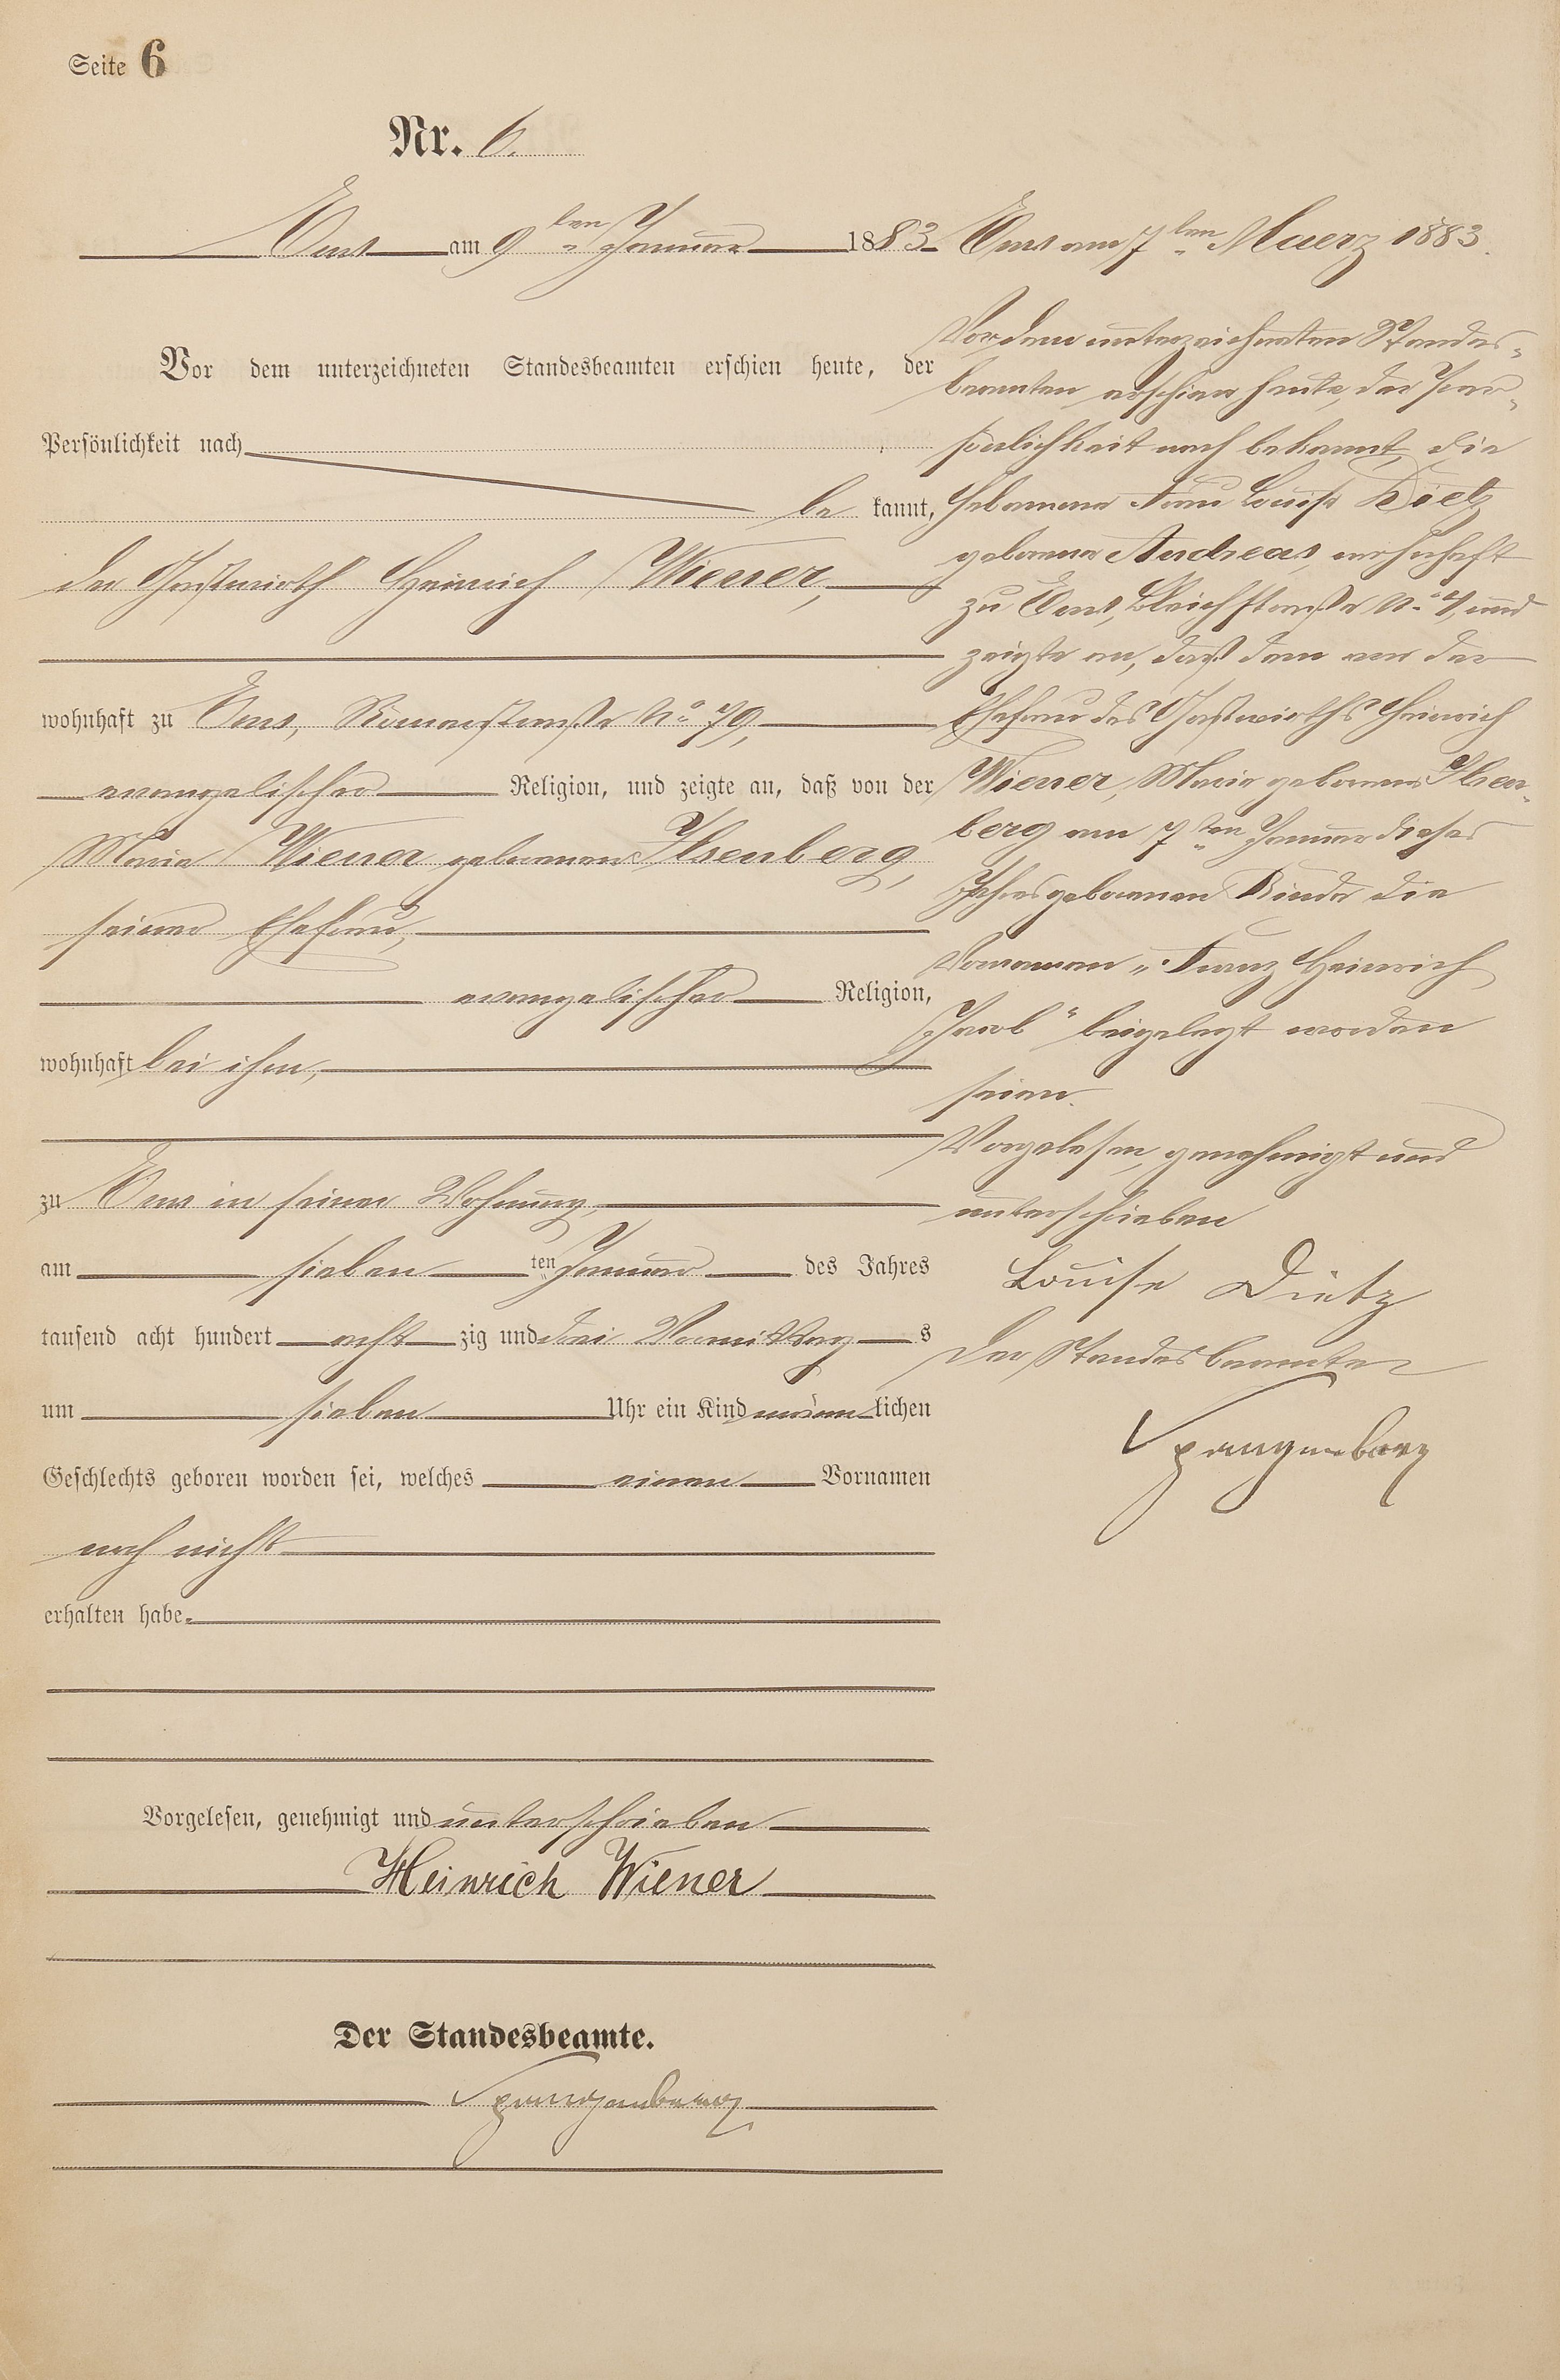 Seite 6
Nr. 6.
Ems am 9ten Januar 1883
Vor dem unterzeichneten Standesbeamten erschien heute, der
Persönlichkeit nach
be kannt,
der Gastwirth Heinrich Wiener,
wohnhaft zu Ems, Römerstraße No 79,
evangelischer Religion, und zeigte an, daß von der
Maria Wiener geborenen Ilsenberg,
seiner Ehefrau,
evangelischer Religion,
wohnhaft bei ihm,
zu Ems in seiner Wohnung,
am sieben ten Januar des Jahres
tausend acht hundert acht zig und drei Vormittag s
um sieben Uhr ein Kind männ lichen
Geschlechts geboren worden sei, welches einen Vornamen
noch nicht
erhalten habe.
Vorgelesen, genehmigt und unterschrieben
Heinrich Wiener
Der Standesbeamte.
Spangenberg
Ems am 7ten Maerz 1883.
Vor dem unterzeichneten Standes-
beamten erschien heute, der Per-
sönlichkeit nach bekannt, die
Hebamme Frau Louise Dietz
geborene Andreas, wohnhaft
zu Ems, Bleichstraße No 4, und
zeigte an, daß dem von der
Ehefrau des Gastwirths Heinrich
Wiener, Maria geborenen Ilsen-
berg am 7ten Januar dieses
Jahres geborenen Kinde die
Vornamen „Franz Heinrich
Jacob“ beigelegt worden
seien.
Vorgelesen, genehmigt und
unterschrieben
Louise Dietz
Der Standesbeamte
Spangenberg